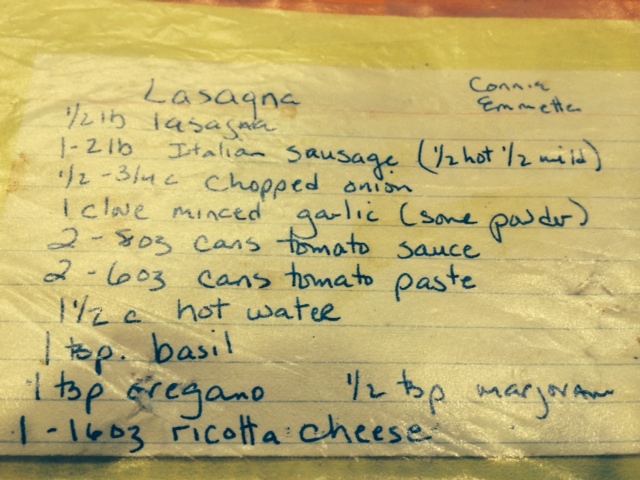 Lasagna
Connie
Emmetta
1/2 lb lasagna
1-2 lb Italian sausage (1/2 hot 1/2 mild)
1/2 - 3/4 c chopped onion
1 clove minced garlic (some powder)
2 - 8 oz cans tomato sauce
2 - 6 oz cans tomato paste
1 1/2 c hot water
1 tsp. basil
1 tsp oregano 1/2 tsp marjoram
1 - 16 oz ricotta cheese